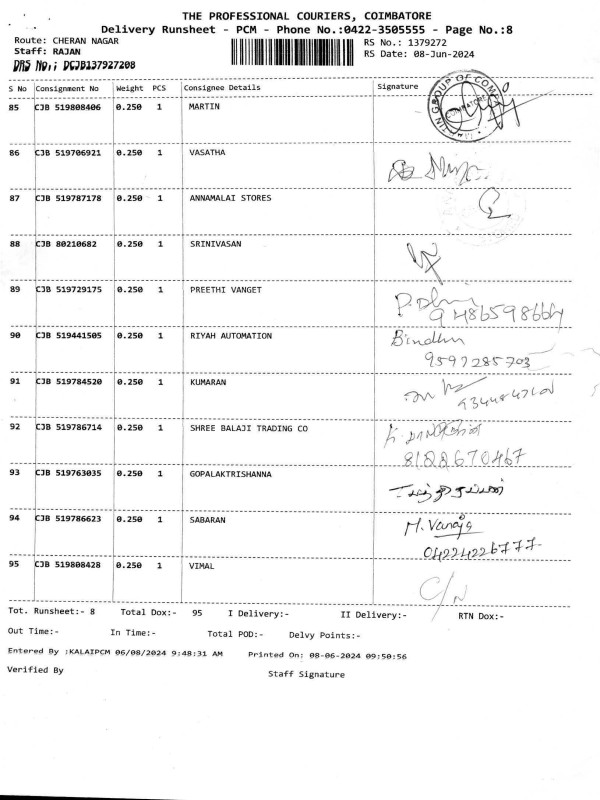 THE PROFESSIONAL COURIERS, COIMBATORE
Delivery Runsheet - PCM - Phone No.:0422-3505555 - Page No.:8
Route: CHERAN NAGAR RS No.: 1379272
Staff: RAJAN RS Date: 08-Jun-2024
DRS No.: DCJB137927208
S No Consignment No Weight PCS Consignee Details Signature
85 CJB 519808406 0.250 1 MARTIN
COIMBATORE
86 CJB 519706921 0.250 1 VASATHA
87 CJB 519787178 0.250 1 ANNAMALAI STORES
88 CJB 80210682 0.250 1 SRINIVASAN
89 CJB 519729175 0.250 1 PREETHI VANGET
90 CJB 519441505 0.250 1 RIYAH AUTOMATION Bindhu
9597285703
91 CJB 519784520 0.250 1 KUMARAN
92 CJB 519786714 0.250 1 SHREE BALAJI TRADING CO
8122670467
93 CJB 519763035 0.250 1 GOPALAKTRISHANNA
94 CJB 519786623 0.250 1 SABARAN M. Vanaja
04224226777
95 CJB 519808428 0.250 1 VIMAL C/N
Tot. Runsheet:- 8 Total Dox:- 95 I Delivery:- II Delivery:- RTN Dox:-
Out Time:- In Time:- Total POD:- Delvy Points:-
Entered By :KALAIPCM 06/08/2024 9:48:31 AM Printed On: 08-06-2024 09:50:56
Verified By Staff Signature